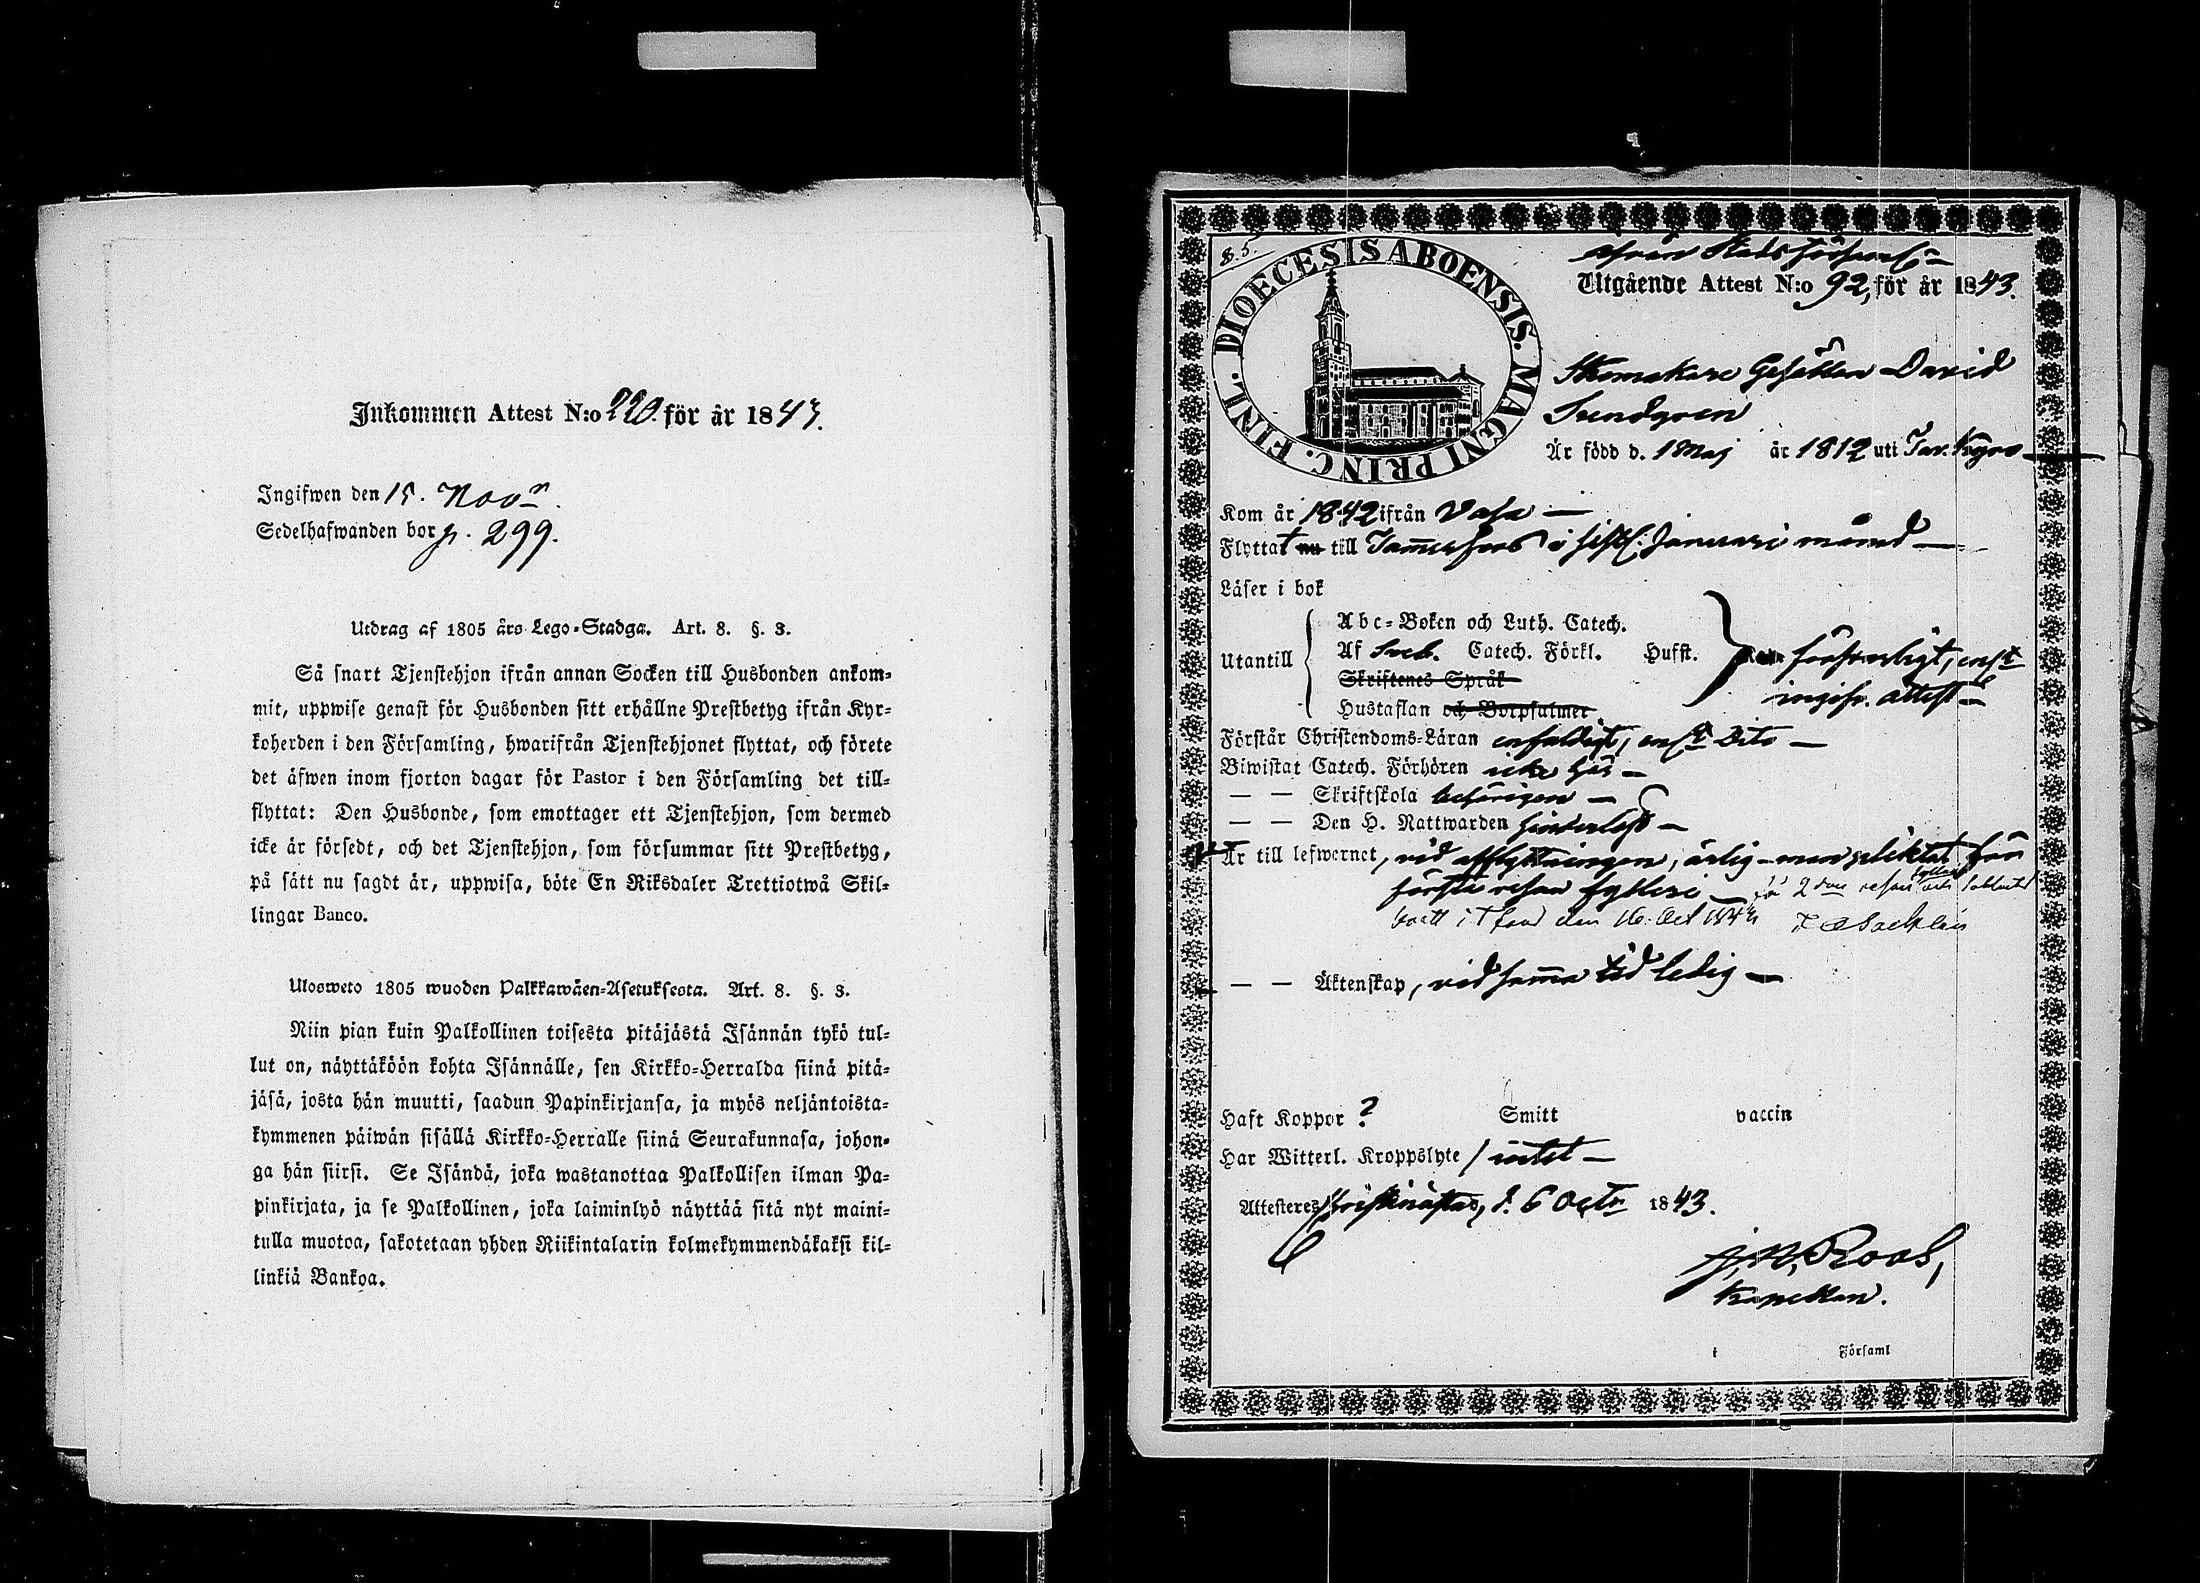 Inkommen Attest N:o 220. för år 1843.
Ingifwen den 15. Novr.
Sedelhafwanden bor p. 299.
Utdrag af 1805 års Lego-Stadga. Art. 8. §. 3.
Så snart Tjenstehjon ifrån annan Socken till Husbonden ankom-
mit, uppwise genast för Husbonden sitt erhållne Prestbetyg ifrån Kyr-
koherden i den Församling, hwarifrån Tjenstehjonet flyttat, och förete
det äfwen inom fjorton dagar för Pastor i den Församling det till-
flyttat: Den Husbonde, som emottager ett Tjenstehjon, som dermed
icke är försedt, och det Tjenstehjon, som försummar sitt Prestbetyg,
på sätt nu sagdt är, uppwisa, böte En Riksdaler Trettiotwå Skil-
lingar Banco.
Ulosweto 1805 wuoden Palkkawäen-Asetuksesta. Art. 8. §. 3.
Niin pian kuin Palkollinen toisesta pitäjästä Isännän tykö tul-
lut on, näyttäköön kohta Isännälle, sen Kirkko-Herralda siinä pitä-
jäsä, josta hän muutti, saadun Papinkirjansa, ja myös neljäntoista-
kymmenen päiwän sisällä Kirkko-Herralle siinä Seurakunnasa, johon-
ga hän siirsi. Se Isändä, joka wastanottaa Palkollisen ilman Pa-
pinkirjata, ja se Palkollinen, joka laiminlyö näyttää sitä nyt maini-
tulla muotoa, sakotetaan yhden Riikintalarin kolmekymmendäkaksi kil-
linkiä Bankoa.
8.5.
DIOECESIS ABOENSIS. MAGNI PRINC. FINL.
ifrån Stads
Utgående Attest N:o 92, för år 1843.
Skomakare Gesällen David
Sundgren
Är född d. 1 Maj år 1812 uti Tav. Kyro
Kom år 1842 ifrån Vasa —
Flyttat nu till Tammerfors i sistl. Januari månad —
Läser i bok
Abc-Boken och Luth. Catech.
Utantill Af Sveb. Catech. Förkl. Husst. försvarligt, enl.
Skriftenes Språk
Hustaflan och Botpsalmer ingifv. attest —
Förstår Christendoms-Läran enfaldigt, enl. Dito —
Biwistat Catech. Förhören icke här —
— — Skriftskola behörigen —
— — Den H. Nattwarden
Är till lefwernet, vid afflyttningen, ärlig — men pliktat för
första resan fylleri — för 2dra resan fylleri och
T fors den 16. Oct 1843
— — Äktenskap, vid samma tid ledig —
Haft Koppor ? Smitt vaccin
Har Witterl. Kroppslyte / intet —
Attesteres Christinæstad, d. 6 Octr 1843.
J. W. Roos,
Kapellan.
i Församl